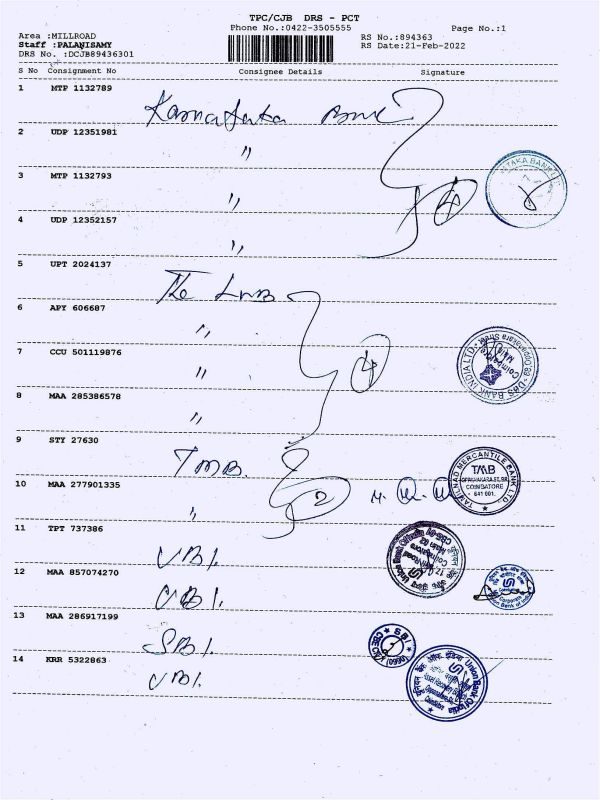 TPC/CJB DRS - PCT
Phone No.:0422-3505555 Page No.:1
Area :MILLROAD RS No.:894363
Staff :PALANISAMY RS Date:21-Feb-2022
DRS No. :DCJB89436301
S No Consignment No Consignee Details Signature
1 MTP 1132789
Karnataka Bank
2 UDP 12351981
"
3 MTP 1132793
"
4 UDP 12352157
"
4
TAKA BANK
5 UPT 2024137
The LVB
6 APY 606687
"
7 CCU 501119876
"
4
DBS BANK INDIA LTD.
Coimbatore
Main
8 MAA 285386578
"
9 STY 27630
TMB.
10 MAA 277901335
"
2
TAMILNAD MERCANTILE BANK LTD.
TMB
COIMBATORE
641 001.
11 TPT 737386
UBI.
Union Bank Of India
12 MAA 857074270
UBI.
13 MAA 286917199
SBI.
S.B.I
14 KRR 5322863
UBI.
Union Bank Of India